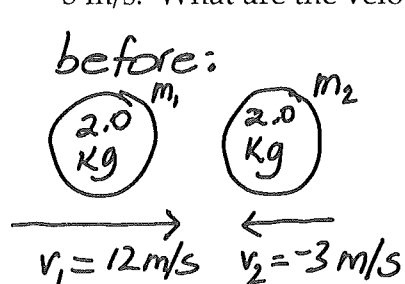 m/s. What are the velo
before:
m₁ m₂
2.0 2.0
Kg Kg
v₁ = 12 m/s v₂ = -3 m/s